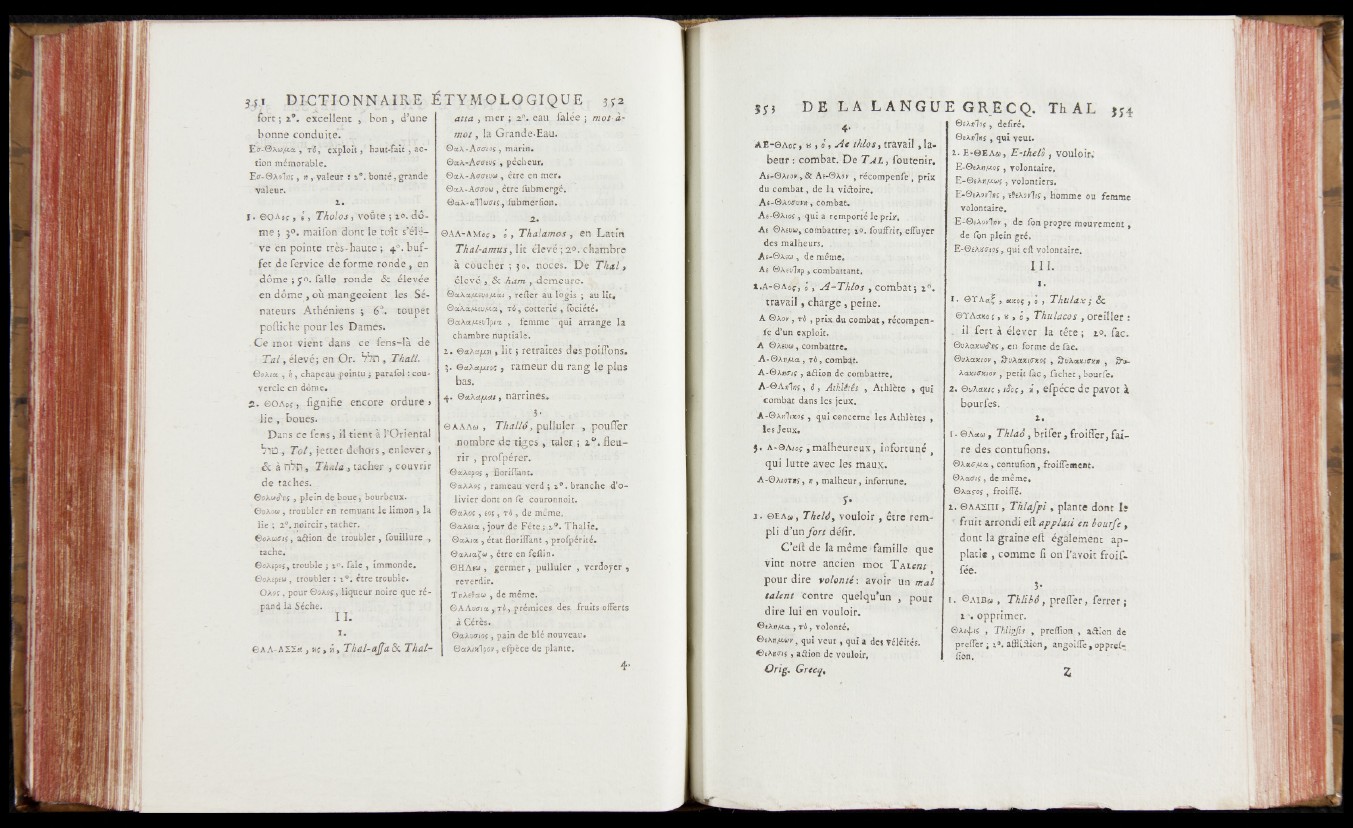 351 DICTIONNAIRE ÉTYMOLOGIQUE 352
fort ; 2°. excellent , bon , d'une
bonne conduite.
Εσ-Θλωμα , τό, exploit, haut-fait , ac-
tion mémorable.
Εσ-Θλοτης , η , valeur : 2°. bonté, grande
valeur.
2.
1. ΘΟΛος , ὁ, Tholos , voûte ; 2o. dô-
me ; 3°. maison dont le toît s'élé-
ve en pointe très-haute ; 4°. buf-
fet de service de forme ronde , en
dôme ; 5°. salle ronde & élevée
en dôme , où mangeoient les Sé-
nateurs Athéniens ; 6°. toupet
postiche pour les Dames.
Ce mot vient dans ce sens-là de
Tal , élevé ; en Or. תלל , Thall.
Θολια , ἡ , chapeau pointu ; parasol : cou-
vercle en dôme.
2. ΘΟΛος , signifie encore ordure ,
lie , boues.
Dans ce sens, il tient à l'Oriental
טול , Tol, jetter dehors , enlever ,
& à תלה , Thula , tacher , couvrir
de taches.
Θολωδης , plein de boue, bourbeux.
Θολοω , troubler en remuant le limon , la
lie ; 2°. noircir, tacher.
Θολωσις , action de troubler , souillure ,
tache.
Θολερος, trouble ; 2°. sale , immonde.
Θολερεω , troubler : 2°. être trouble.
Ολος , pour Θολος, liqueur noire que ré-
pand la Séche.
II.
1.
ΘΑΛ-ΑΣΣα , ης , ἡ , Thal-assa & Thal-
atta , mer ; 2°. eau salée ; mot-à-
mot , la Grande-Eau.
Θαλ-Ασσιος , marin.
Θαλ-Ασσευς , pêcheur.
Θαλ-Ασσευω , être en mer.
Θαλ-Ασσοω , être submergé.
Θαλ-αττωσις, submersion.
2.
ΘΑΛ-ΑΜος , ὁ , Thalamos , en Latin
Thal-amus, lit élevé ; 2°. chambre
à coucher ; 3o. noces. De Thal ,
élevé , & ham , demeure.
Θαλαμευομαι , rester au logis ; au lit.
Θαλαμευμα , τό, cotterie , société.
Θαλαμευτρια , femme qui arrange la
chambre nuptiale.
2. Θαλαμη , lit ; retraites des poissons.
3. Θαλαμιος , rameur du rang le plus
bas.
4. Θαλαμαι , narrines.
3.
ΘΑΛΛω , Thallô , pulluler , pousser
nombre de tiges , taler ; 2°. fleu-
rir , prospérer.
Θαλερος , florissant.
Θαλλος , rameau verd ; 2°. branche d'o-
livier dont on se couronnoit.
Θαλος , εος , τό , de même.
Θαλεια , jour de Fête ; 2°. Thalie.
Θαλια , état florissant , prospérité.
Θαλιαζω , être en festin.
ΘΗΛεω , germer , pulluler , verdoyer ,
reverdir.
Τηλεθαω , de même.
ΘΑΛυσια , τό , prémices des fruits offerts
à Cérès.
Θαλυσιος , pain de blé nouveau.
Θαλικτρον , espèce de plante.
4.
353 DE LA LANGUE GRECQ. Th AL 354
4.
ΑΕ-ΘΛος , ου , ὁ , Ae thlos, travail , la-
beur : combat. De TAL , soutenir.
Αε-Θλιον, & Αε-Θλον , récompense , prix
du combat , de la victoire.
Αε-Θλοσυνη , combat.
Αε-Θλιος , qui a remporté le prix.
Αε Θλευω, combattre; 2°. souffrir, essuyer
des malheurs.
Αε-Θλεω , de même.
Αε Θλητηρ , combattant.
2. Α-ΘΛος, ὁ , A-Thlos , combat ; 2°.
travail , charge , peine.
Α Θλον , τό , prix du combat, récompen-
se d'un exploit.
Α Θλευω , combattre.
Α-Θλημα , τό, combat.
Α-Θλησις , action de combattre.
Α-Θλητης , ὁ , Athlêtês , Athlète , qui
combat dans les jeux.
Α-Θλητικος , qui concerne les Athlètes ,
les Jeux.
3. Α-Θλιος , malheureux, infortuné ,
qui lutte avec les maux.
Α-Θλιοτης , η , malheur , infortune.
5.
1. ΘΕΛω , Thelô , vouloir , être rem-
pli d'un fort désir.
C'est de la même famille que
vint notre ancien mot TALent ,
pour dire volonté : avoir un mal
talent contre quelqu'un , pour
dire lui en vouloir.
Θελημα , τό , volonté.
Θελημων , qui veut , qui a des véléités.
Θελησις , action de vouloir.
Orig. Grecq.
Θελητος , desiré.
Θελητης , qui veut.
2. Ε-ΘΕΛω , E-thelô , vouloir.
Ε-Θελημος , volontaire.
Ε-Θελημως , volontiers.
Ε-Θελοντης , εθελοντις , homme ou femme
volontaire.
Ε-Θελοντην , de son propre mouvement ,
de son plein gré.
Ε-Θελουσιος , qui est volontaire.
III.
1.
1. ΘΥΛαξ , ακος , ὁ , Thulax ; &
ΘΥΛακος , ου , ὁ , Thulacos , oreiller :
il sert à élever la tête ; 2°. sac.
Θυλακωδης , en forme de sac.
Θυλακιον , Θυλακισκος , Θυλακισκη , Θυ-
λακισκιον , petit sac , sachet , bourse.
2. Θυλακις , ιδος , ἡ , espéce de pavot à
bourses.
2.
1. Θλαω , Thlaô , briser , froisser, fai-
re des contusions.
Θλασμα , contusion , froissement.
Θλασις , de même.
Θλαστος , froissé.
2. ΘΛΑΣΠΙ , Thlaspi , plante dont le
fruit arrondi est applati en bourse ,
dont la graine est également ap-
platie , comme si on l'avoit frois-
sée.
3.
1. ΘΛΙΒω , Thlibô , presser , serrer ;
2°. opprimer.
Θλιψις , Thlipsis , pression , action de
presser ; 2°. affliction , angoisse , oppres-
sion.
Z